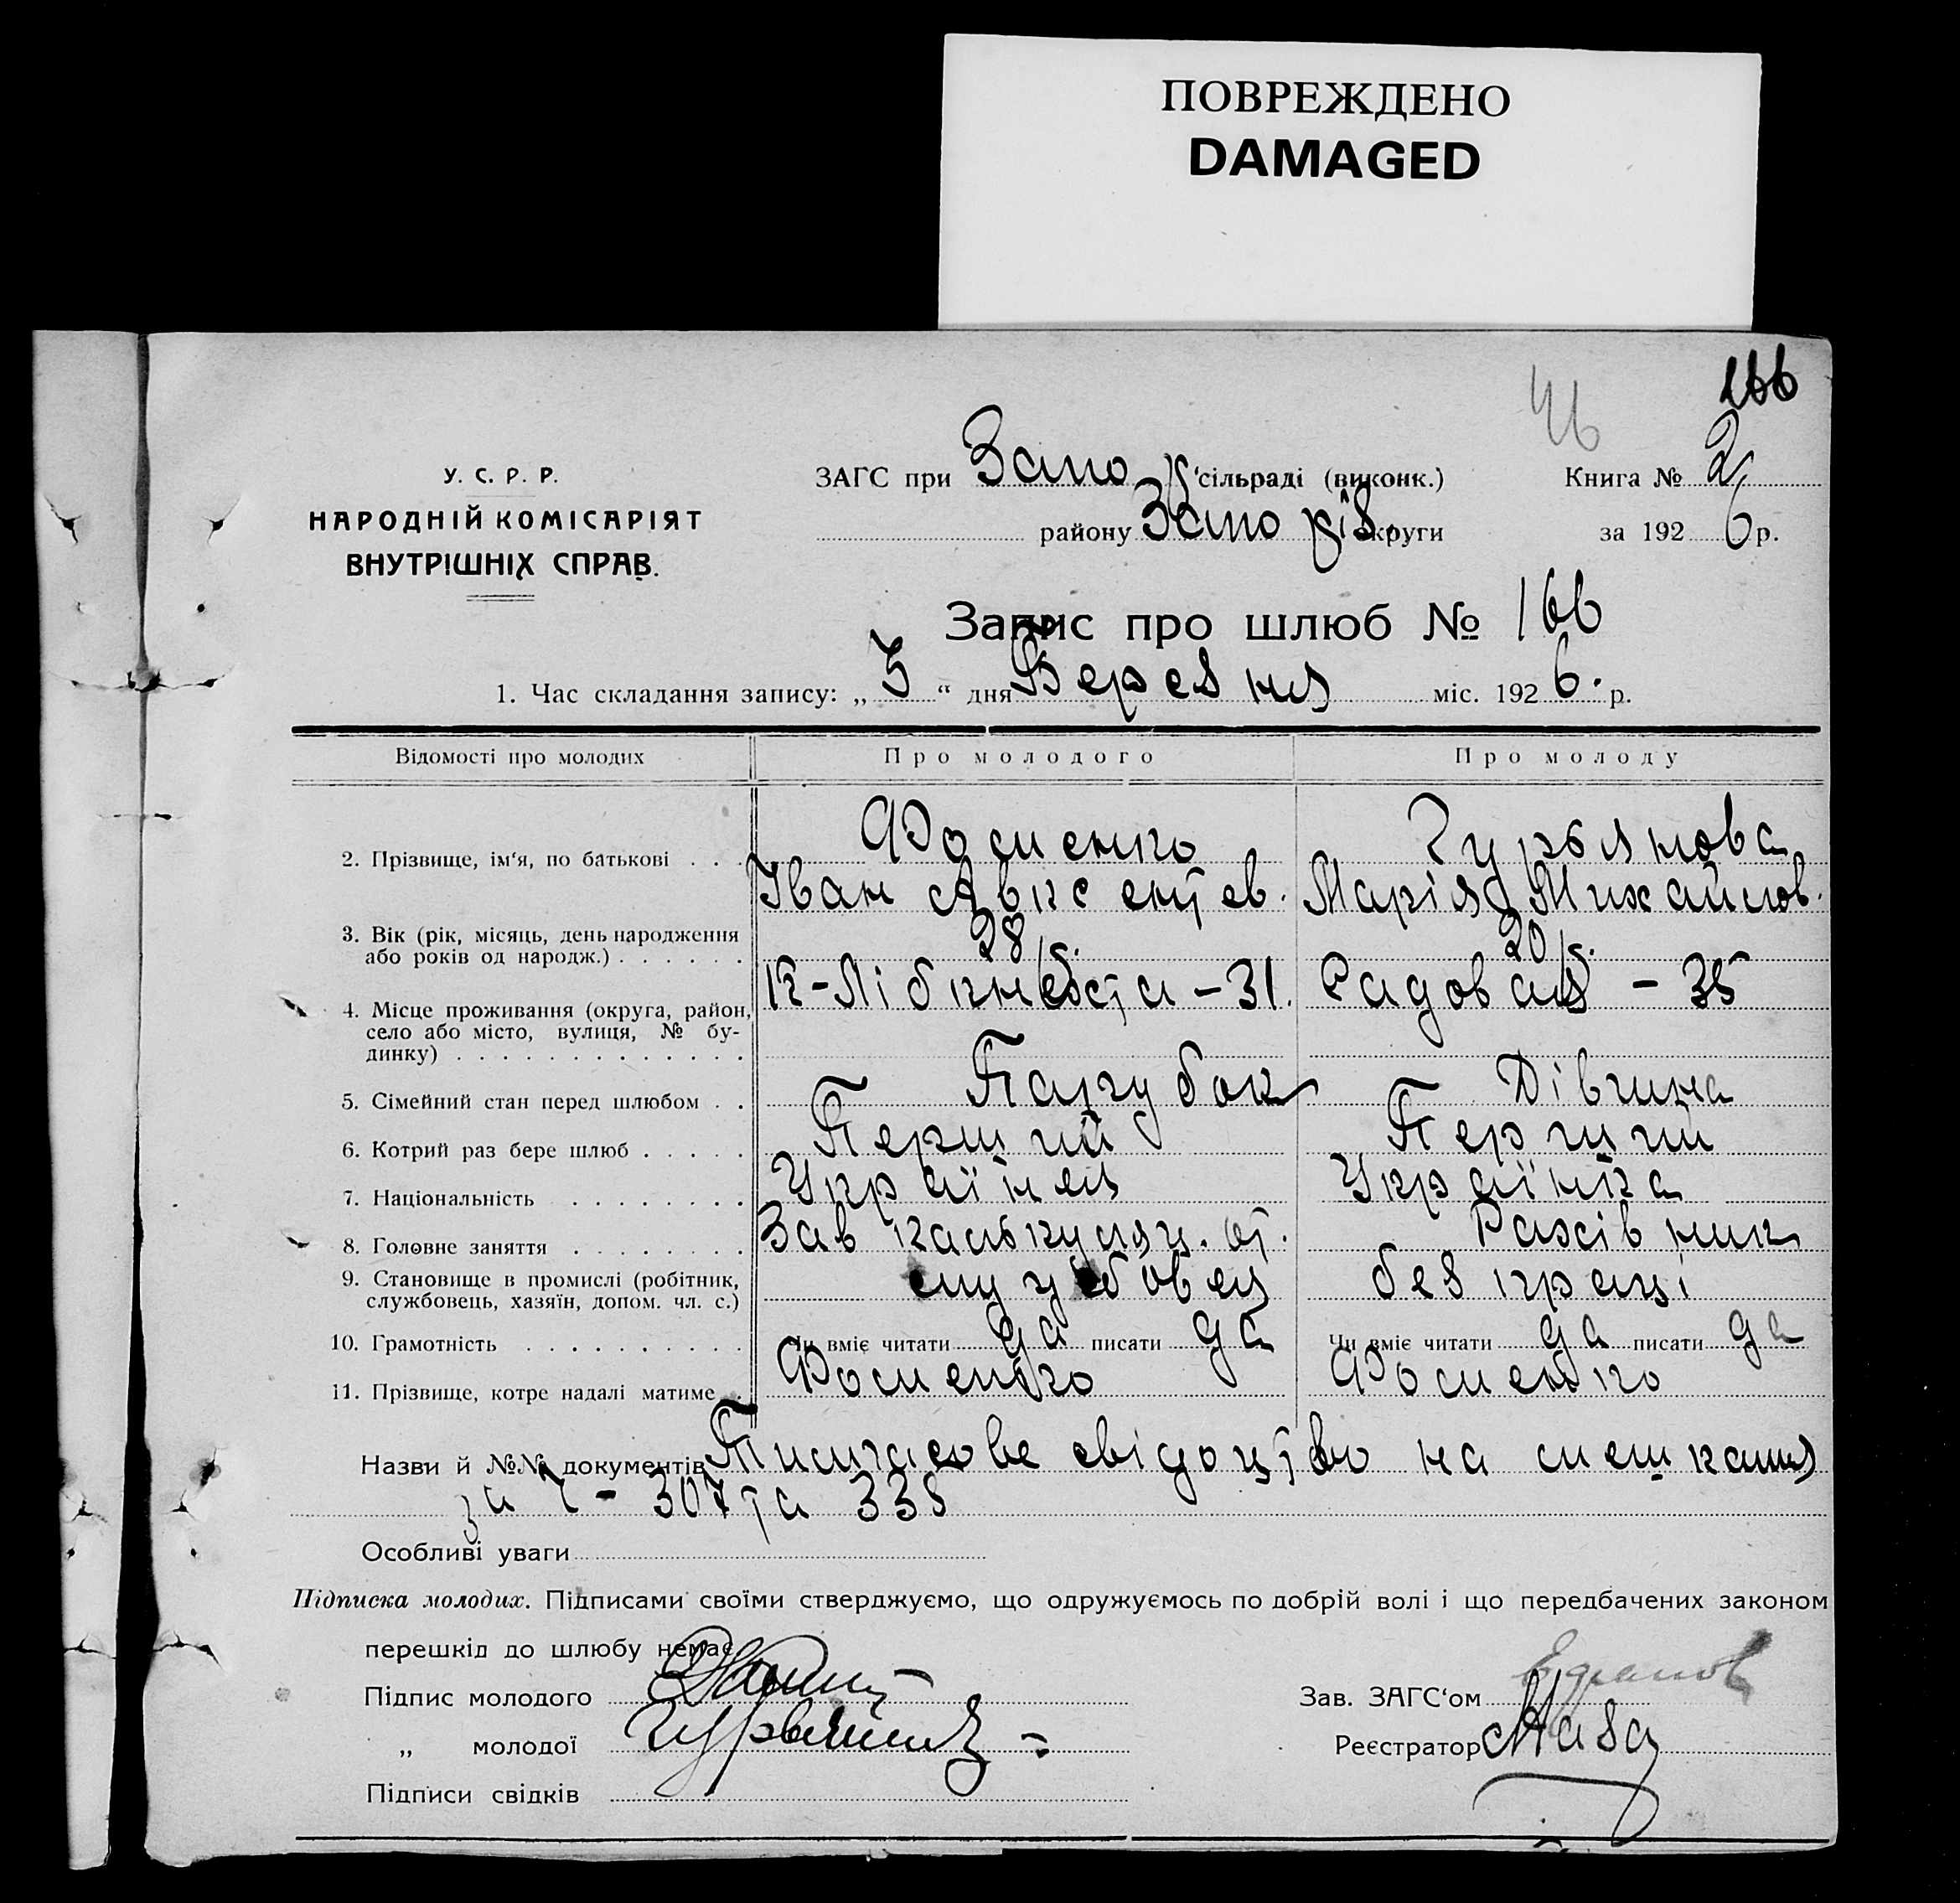 ПОВРЕЖДЕНО
DAMAGED
166
46
У. С. Р. Р.
НАРОДНІЙ КОМІСАРІЯТ
ВНУТРІШНІХ СПРАВ.
ЗАГС при Запо сільраді (виконк.)
району Запоріз округи
Книга № 2
за 1926 р.
Запис про шлюб № 166
1. Час складання запису: „ 3 “ дня Вересня міс. 1926. р.
Відомості про молодих Про молодого Про молоду
2. Прізвище, ім‘я, по батькові . . . Фоменко Гурьянова
Іван Авксентєв. Марія Михайлов.
3. Вік (рік, місяць, день народження 28 р. 20 р.
або років од народж.) . . . . . .
К-Лібкнехта - 31. Садовая - 35
4. Місце проживання (округа, район,
село або місто, вулиця, № бу-
динку) . . . . . . . . . . . . .
5. Сімейний стан перед шлюбом . . Парубок Дівчина
6. Котрий раз бере шлюб . . . . . Перший Перший
7. Національність . . . . . . . . Українец Українка
8. Головне заняття . . . . . . . . Зав калькуляц. от. Рахівник
9. Становище в промислі (робітник, службовец без праці
службовець, хазяїн, допом. чл. с.)
10. Грамотність . . . . . . . . . . Чи вміє читати да писати да Чи вміє читати да писати да
11. Прізвище, котре надалі матиме . Фоменко Фоменко
Назви й №№ документів Тимчасове свідоцтво на мешкання
за Ч - 307 та 338
Особливі уваги
Підписка молодих. Підписами своїми стверджуємо, що одружуємось по добрій волі і що передбачених законом
перешкід до шлюбу немає.
Підпис молодого
Зав. ЗАГС‘ом
„ молодої
Реєстратор
Підписи свідків